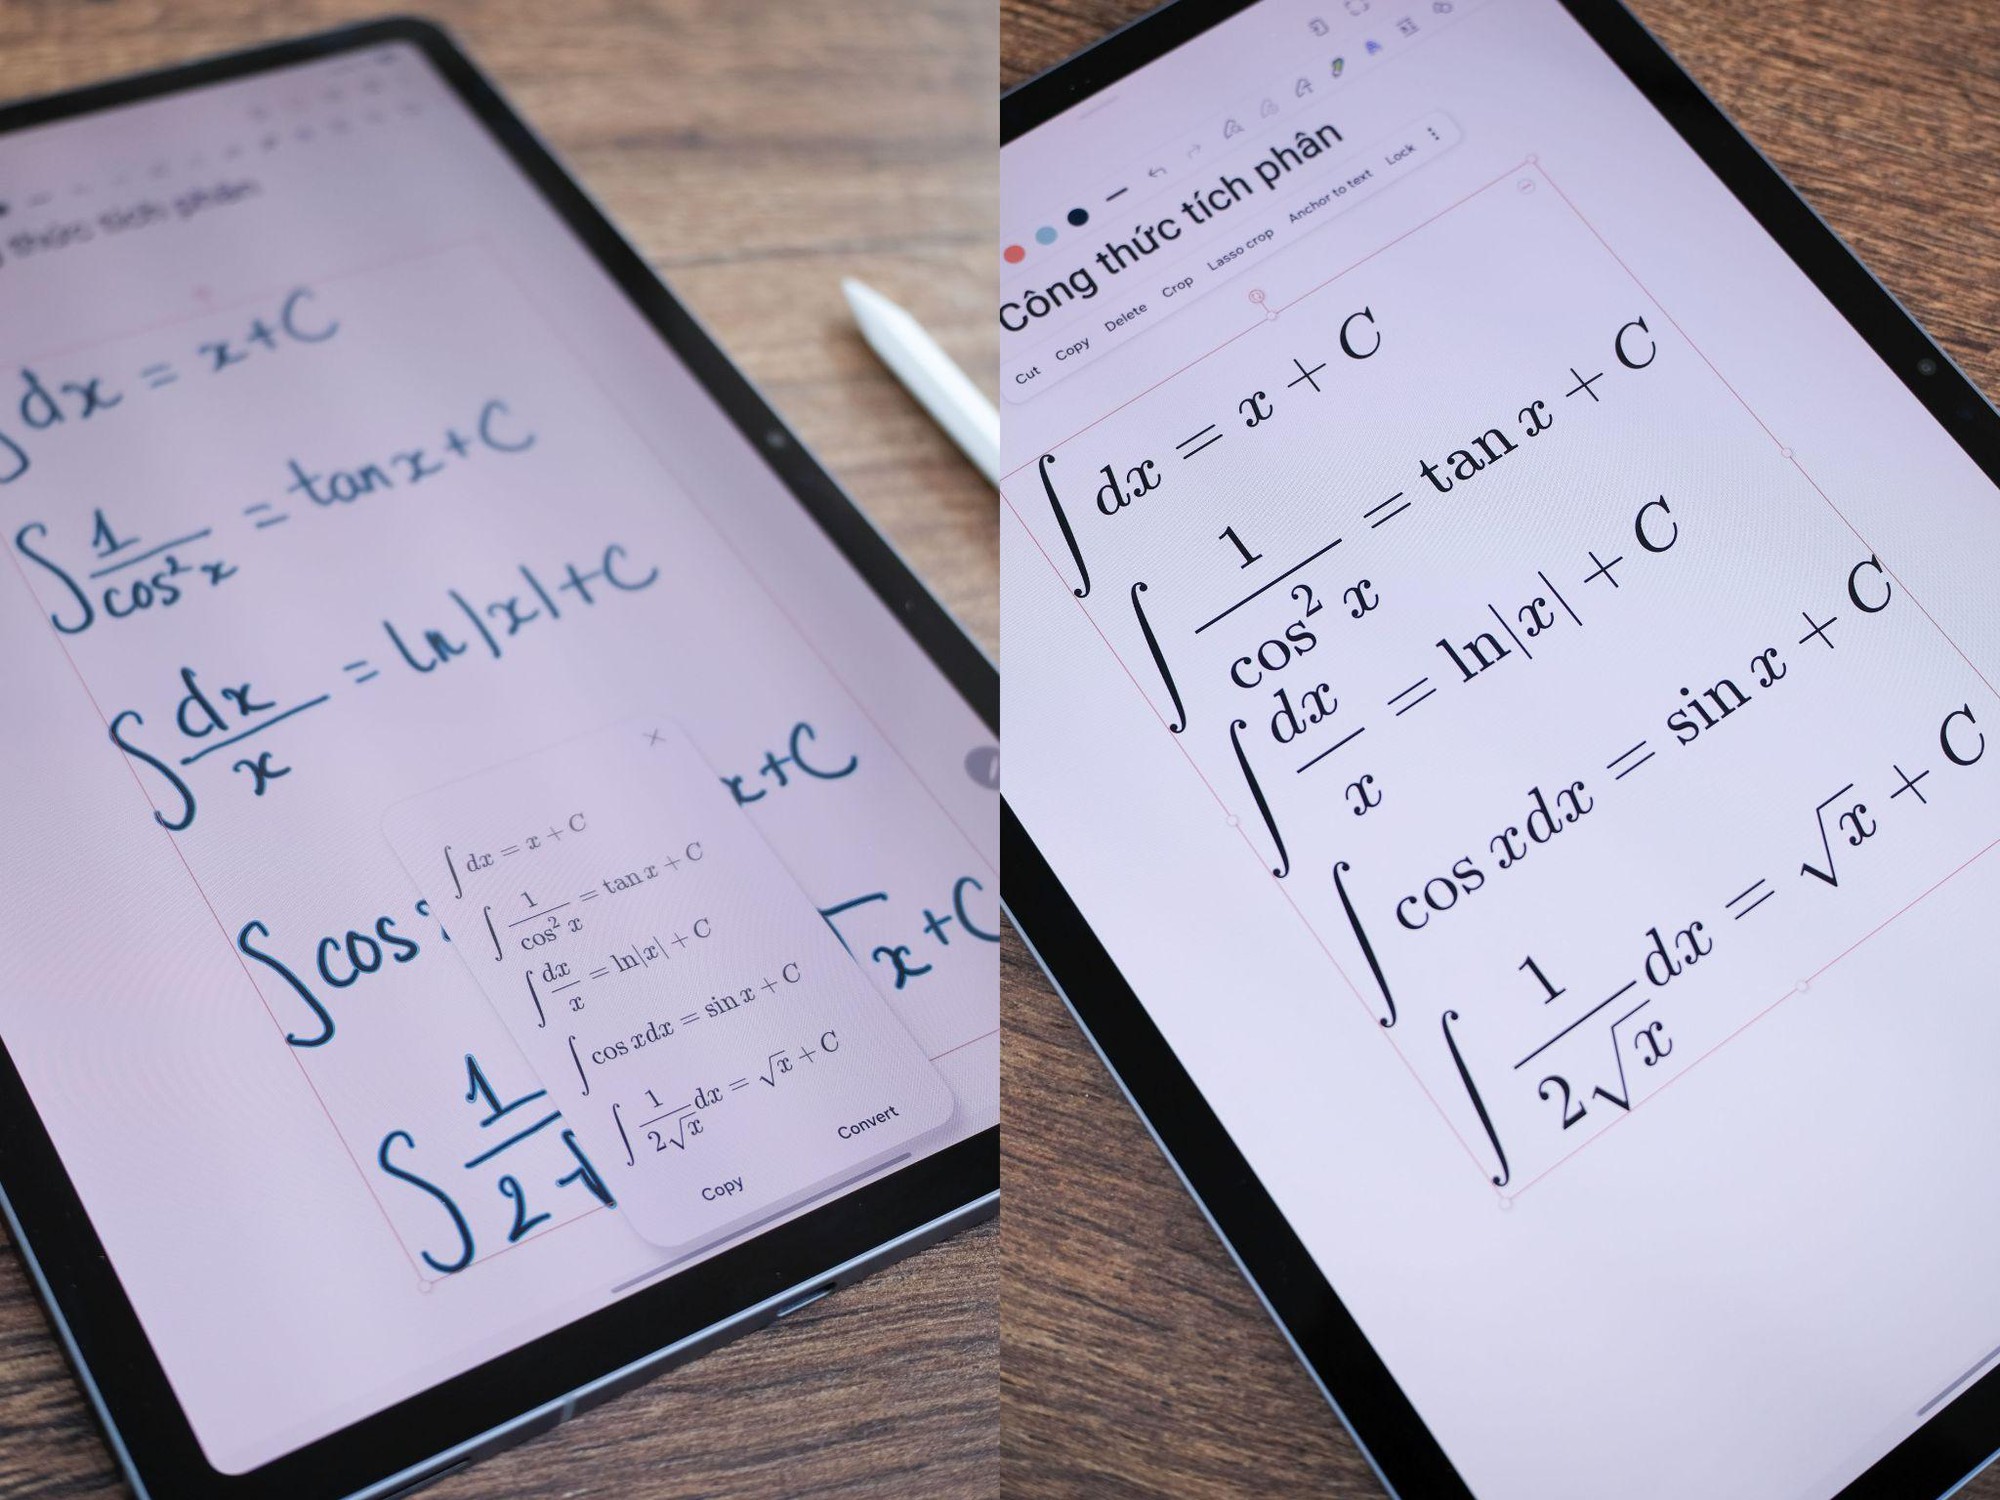 thức tích phân
∫dx = x+C
∫1/cos²x = tanx+C
∫dx/x = ln|x|+C
∫cos x+C
∫1/2√ x+C
∫dx = x + C
∫1/cos² x = tan x + C
∫dx/x = ln|x| + C
∫cos xdx = sin x + C
∫1/2√x dx = √x + C
Copy Convert
Công thức tích phân
Cut Copy Delete Crop Lasso crop Anchor to text Lock
∫dx = x + C
∫1/cos² x = tan x + C
∫dx/x = ln|x| + C
∫cos xdx = sin x + C
∫1/2√x dx = √x + C